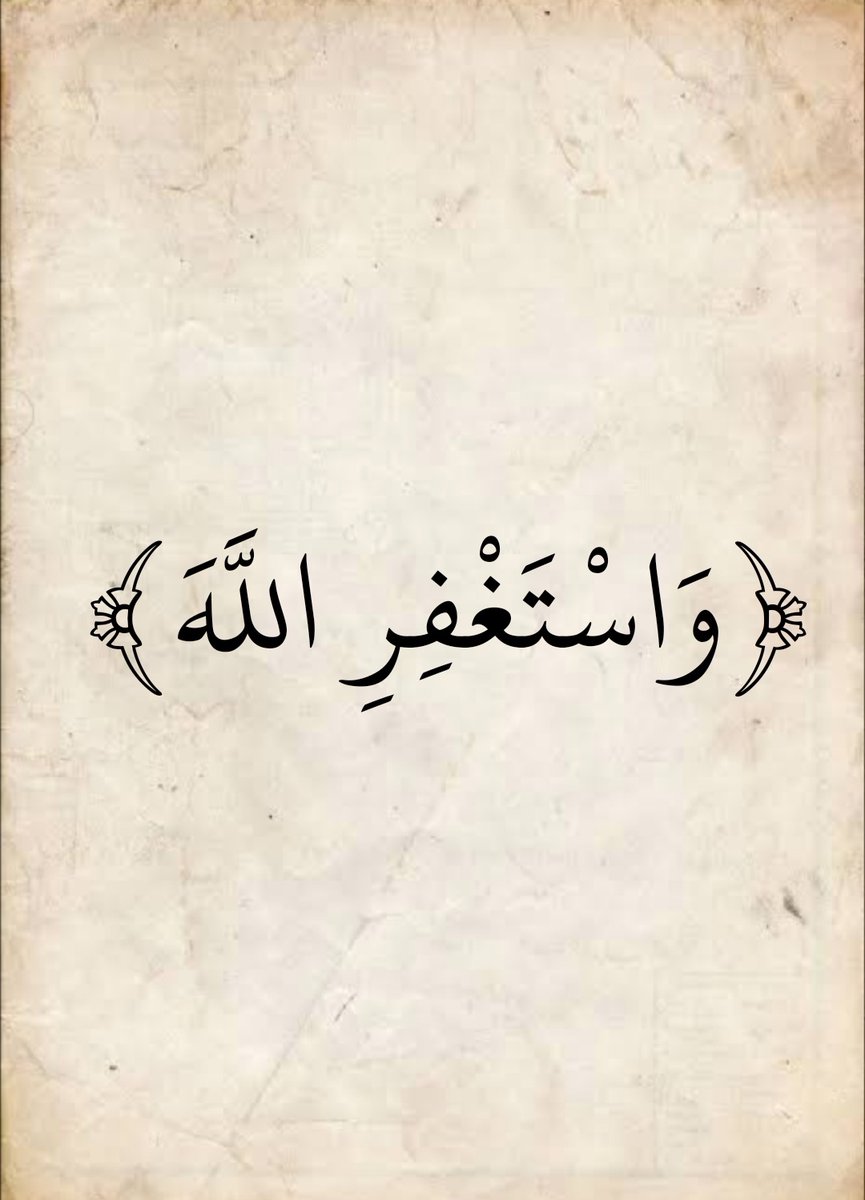 ﴿ وَاسْتَغْفِرِ اللَّهَ ﴾